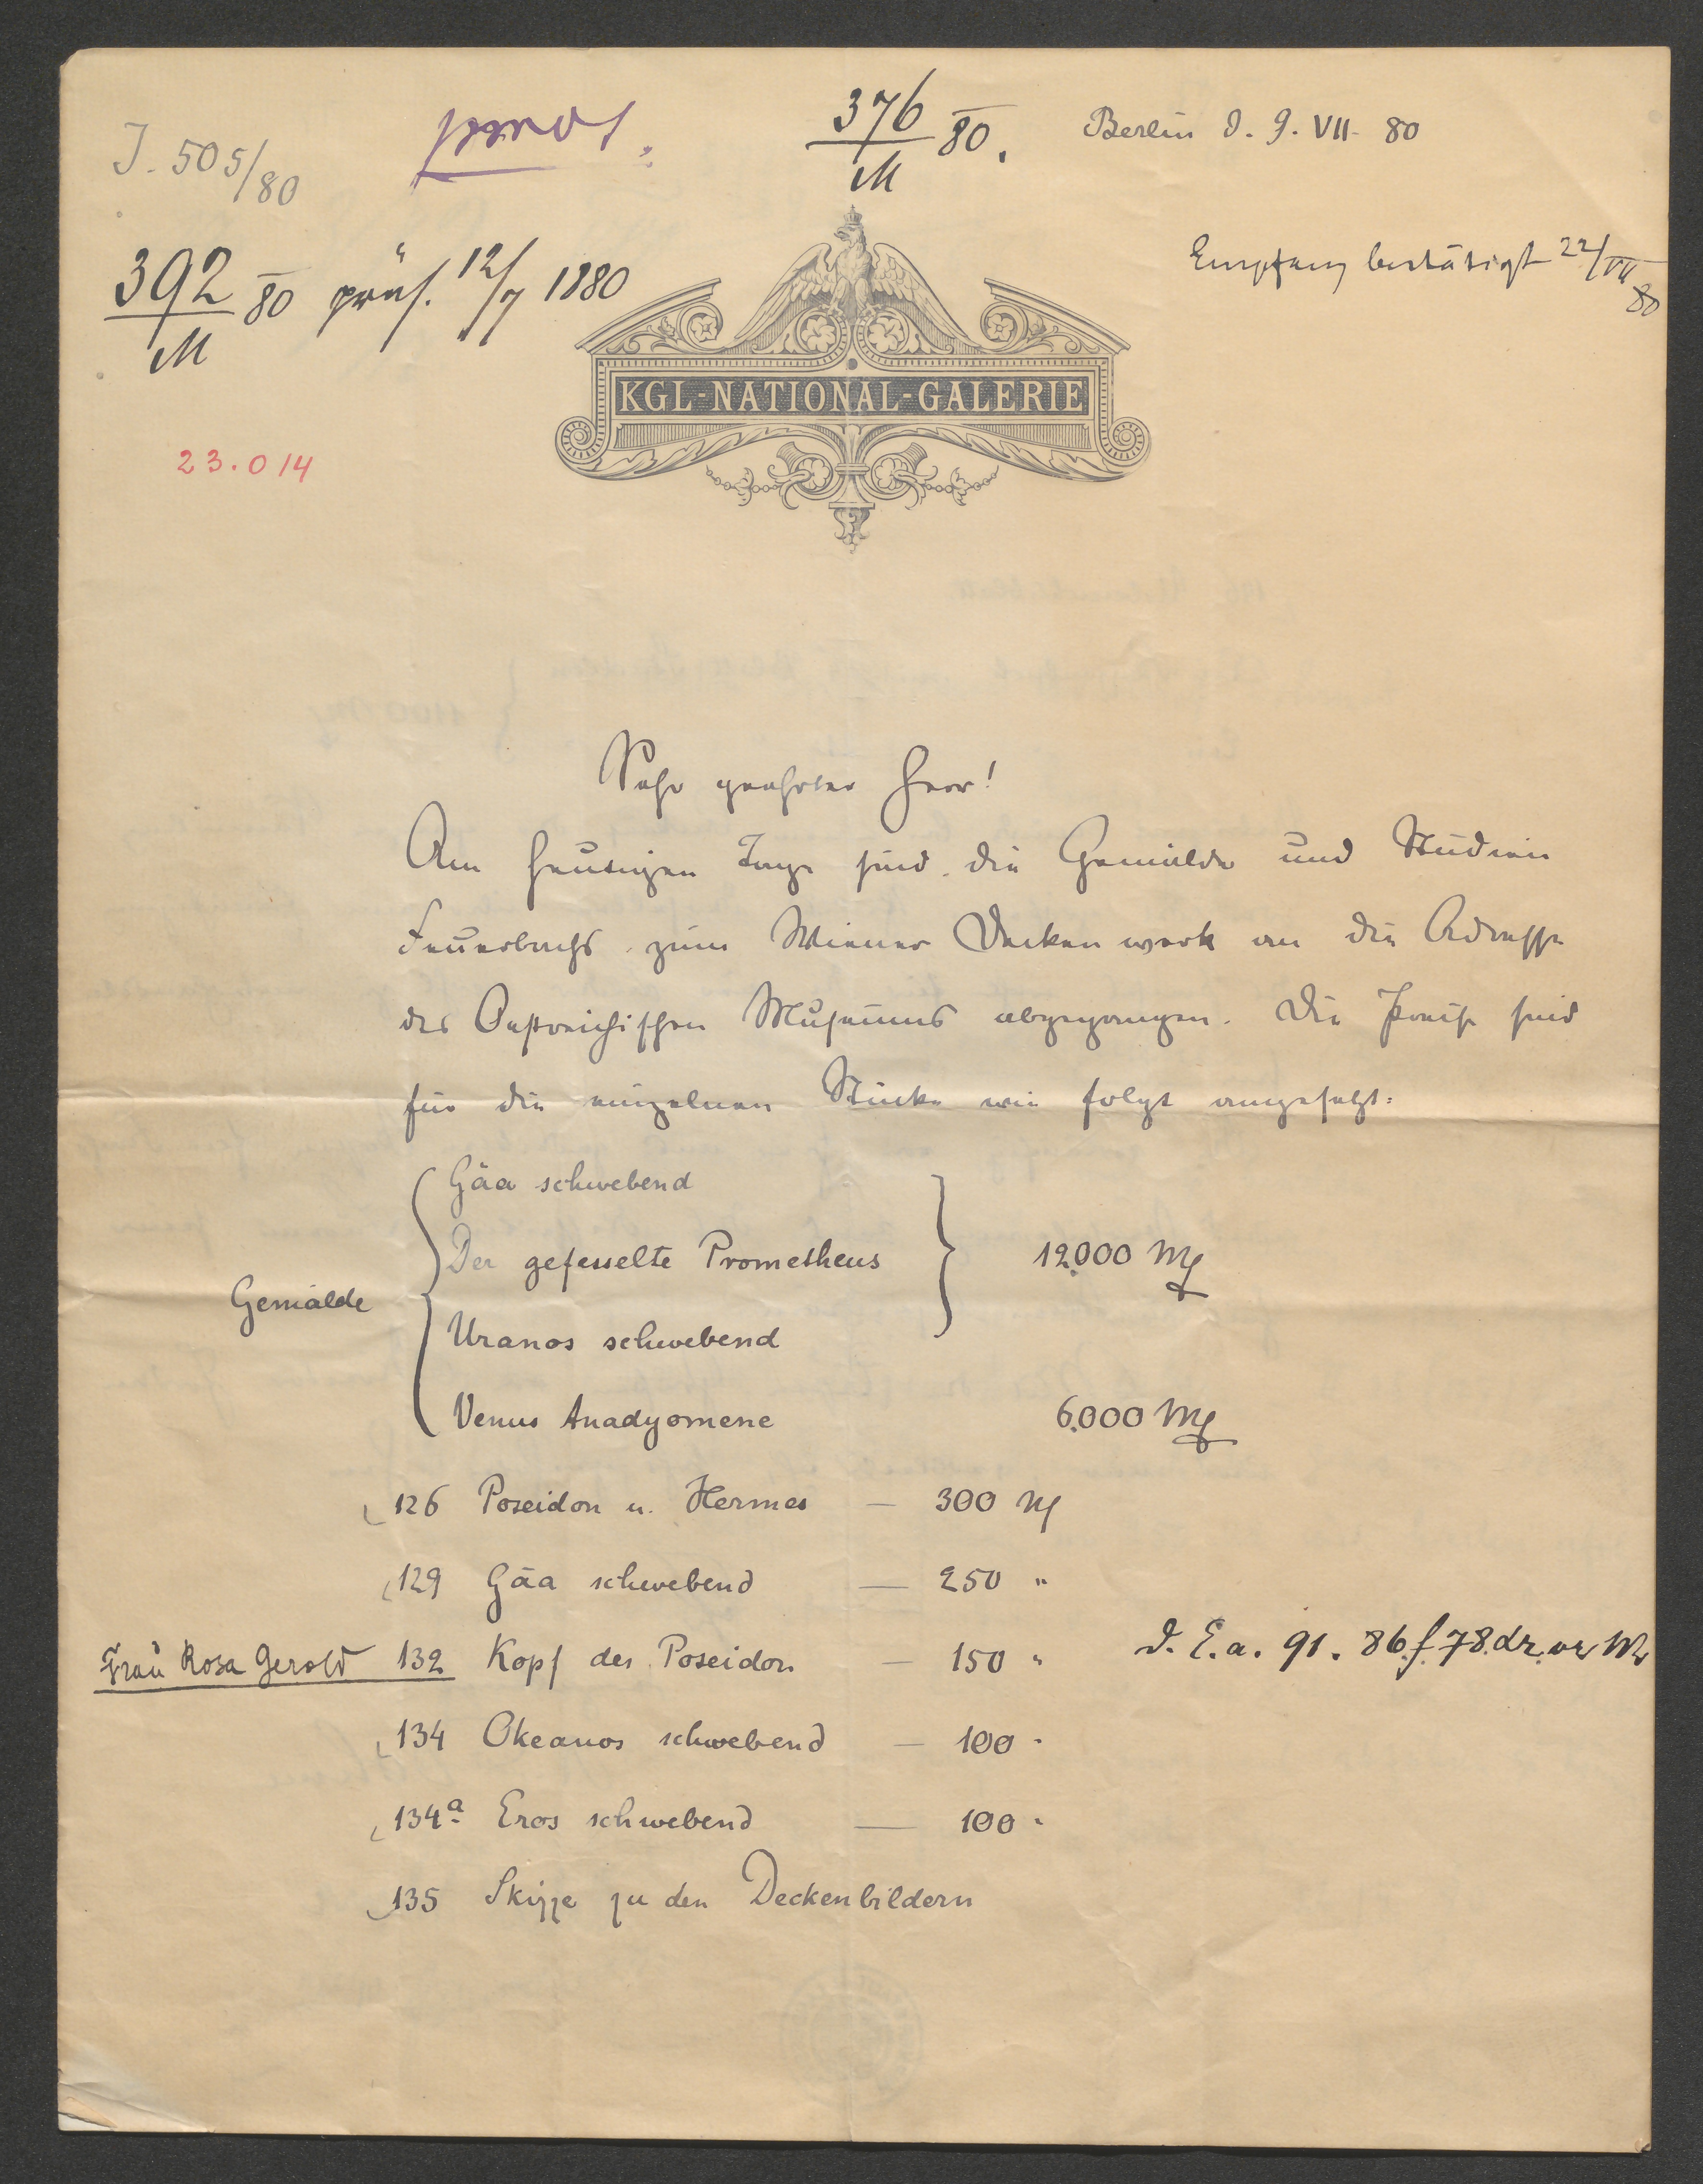 J. 505/80
376/M 80.
Berlin d. 9. VII. 80
392/M 80 präs. 12/7 1880
Empfang bestätigt 22/VII 80
KGL-NATIONAL-GALERIE
23.014
Sehr geehrter Herr!
Am heutigen Tage sind die Gemälde und Studien
Feuerbachs zum Wiener Deckenwerk an die Adresse
des Oestreichischen Museums abgegangen. Die Preise sind
für die einzelnen Stücke wie folgt angesetzt:
Gäa schwebend
Der gefesselte Prometheus 12.000 M
Gemälde
Uranos schwebend
Venus Anadyomene 6.000 M
126 Poseidon u. Hermes — 300 M
129 Gäa schwebend — 250 "
Frau Rosa Gerold 132 Kopf des Poseidon — 150 "
134 Okeanos schwebend — 100 "
134a Eros schwebend — 100 "
135 Skizze zu den Deckenbildern